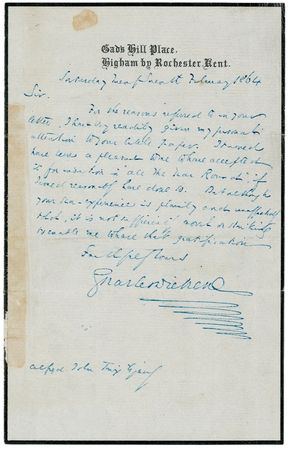 Gad's Hill Place.
Higham by Rochester, Kent.
Saturday February 1864
Sir.
For the reasons referred to in your
letter, I have readily given my personal
attention to your little Paper. I should
have been pleased to have accepted
it for insertion in All the Year Round, if
I could reasonably have done so. But although
your is plainly and unaffectedly
told, it is not sufficiently novel or striking
to enable me to have that gratification
Faithfully yours
Charles Dickens
Alfred John